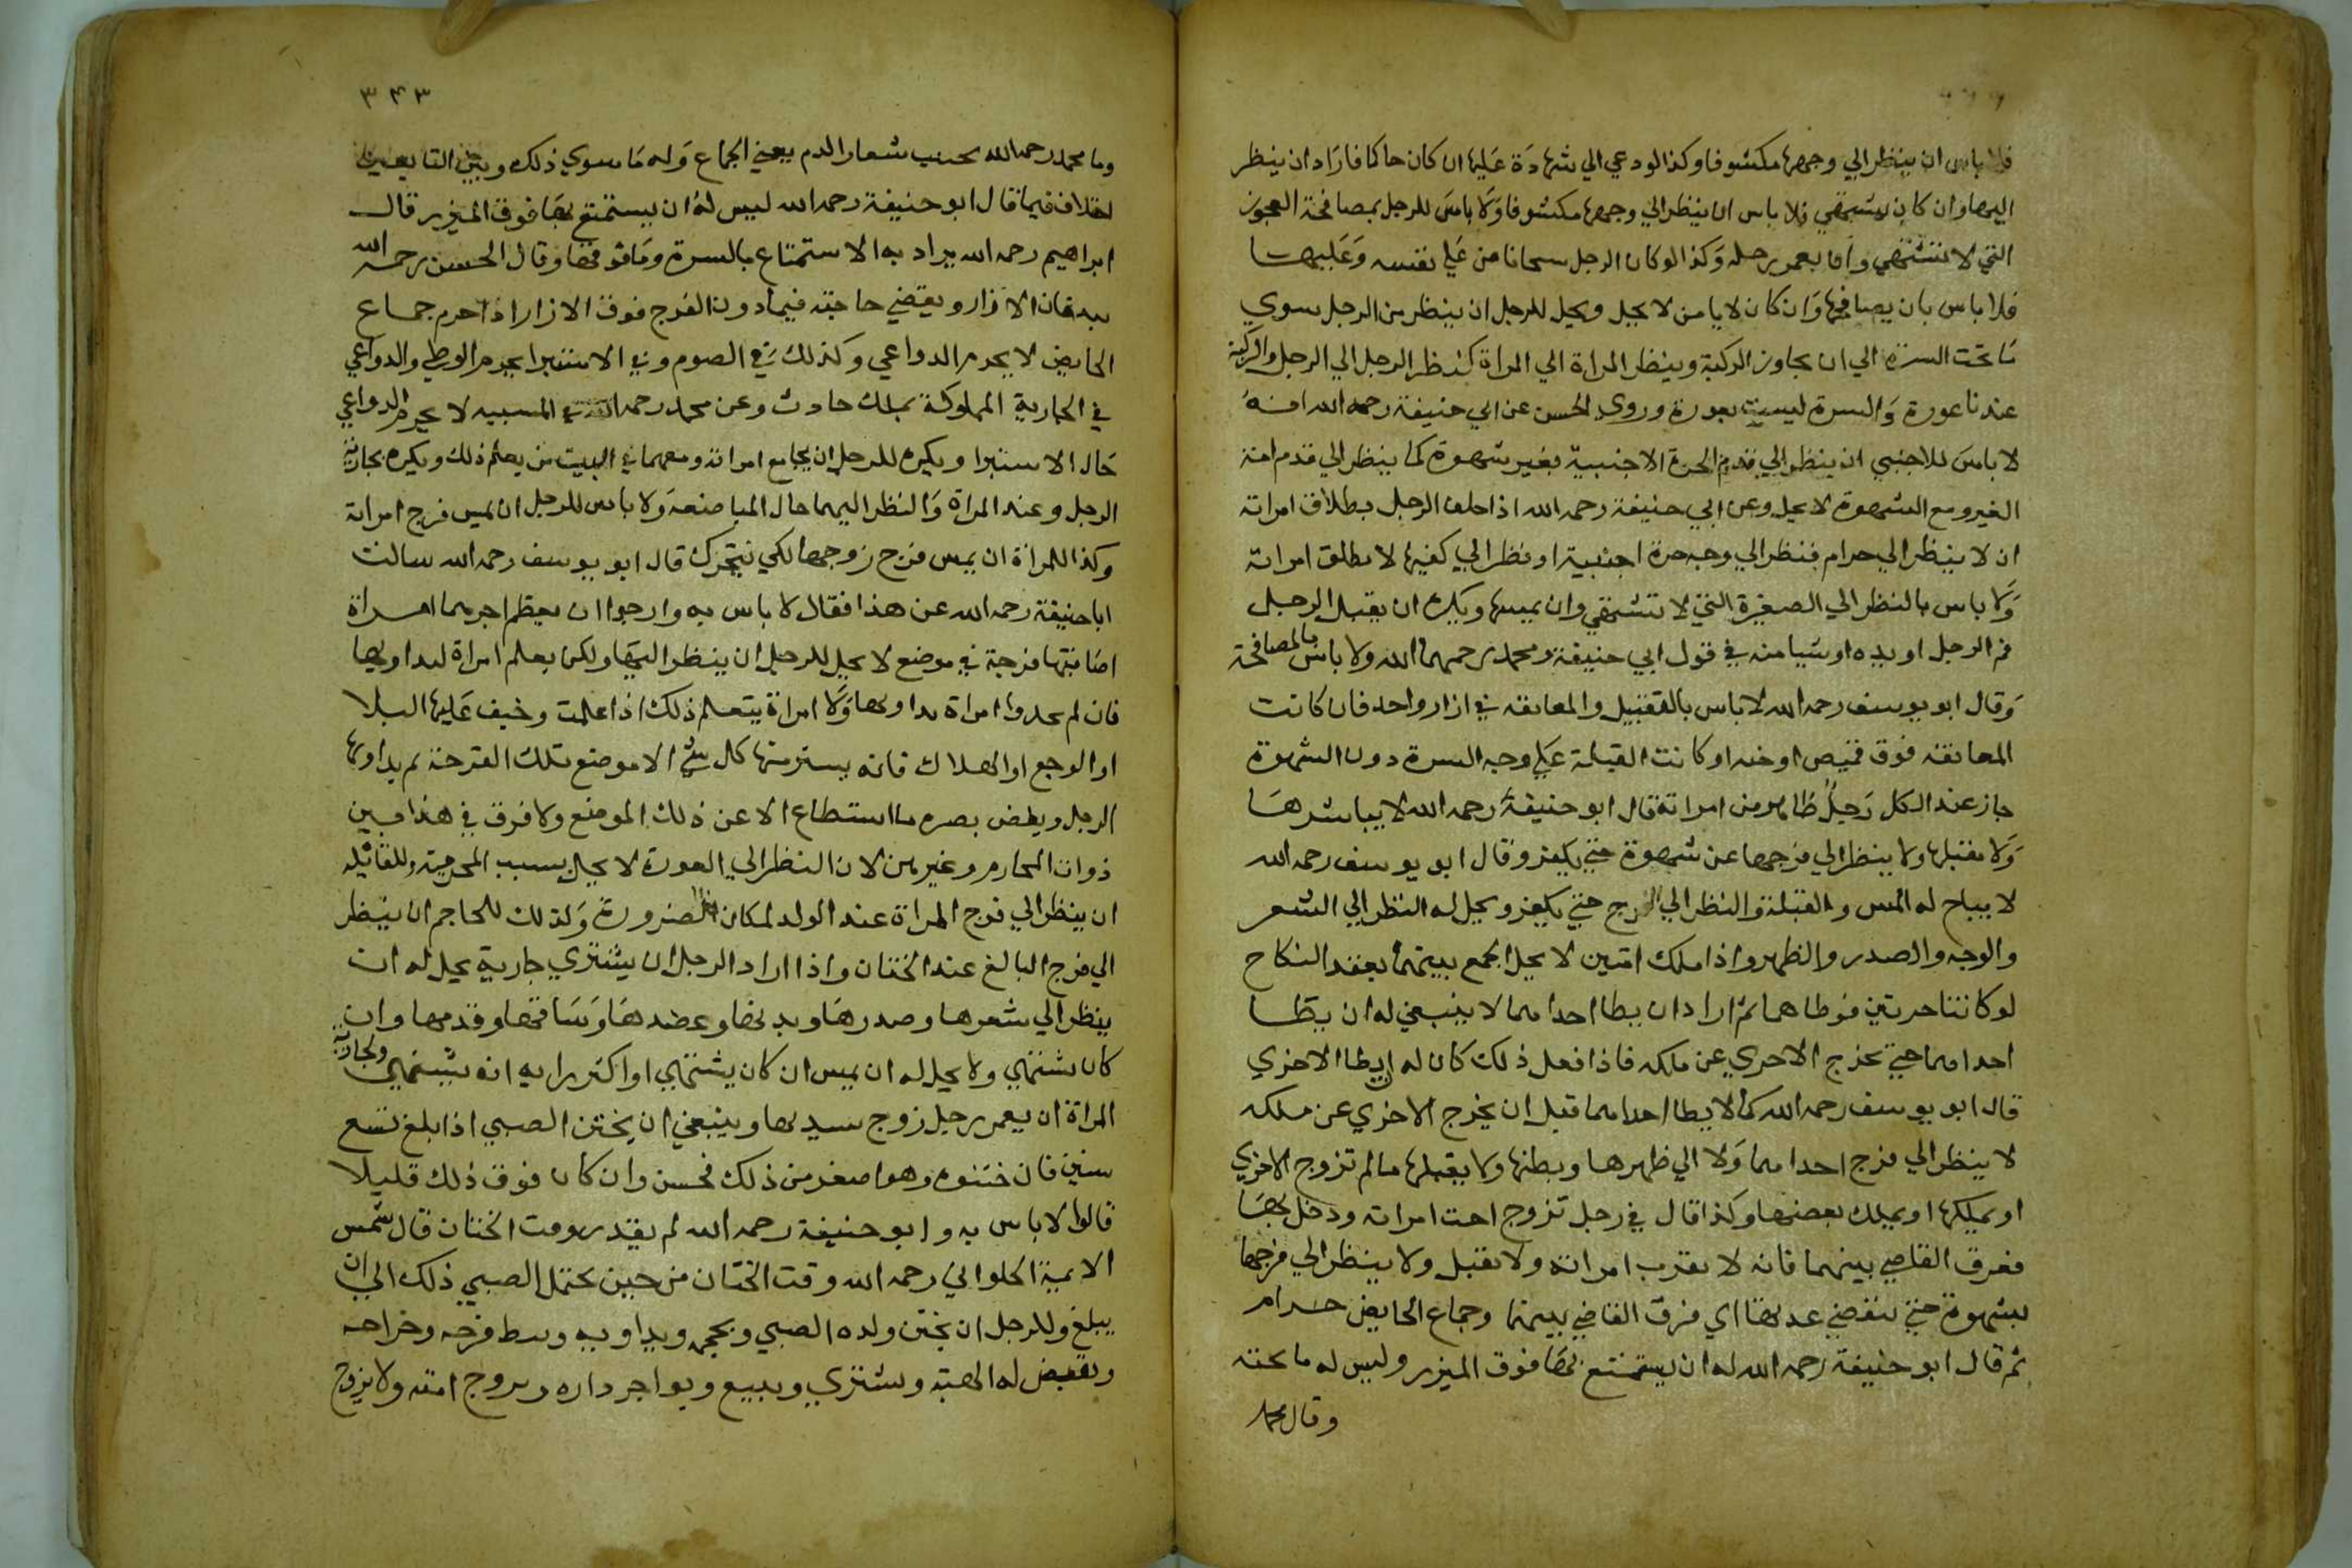 فلا باس ان ينظر الي وجهها مكشوفا وكذا لو دعي الي شهادة عليها او كان حاكما فاراد ان ينظر
اليها وان كان يشتهي فلا باس ان ينظر الي وجهها مكشوفا ولا باس للرجل بمصافحة العجوز
التي لا تشتهي وان يغمز رجله وكذا لو كان الرجل شيخا يامن علي نفسه وعليها
فلا باس بان يصافحها وان كان لا يامن لا يحل ويحل للرجل ان ينظر من الرجل سوي
ما تحت السرة الي ان يجاوز الركبة وينظر المراة الي المراة كنظر الرجل الي الرجل والركبة
عندنا عورة والسرة ليست بعورة وروي الحسن عن ابي حنيفة رحمه الله انه
لا باس للاجنبي ان ينظر الي قدم الحرة الاجنبية بغير شهوة كما ينظر الي قدم امة
الغير ومع الشهوة لا يحل وعن ابي حنيفة رحمه الله اذا حلف الرجل بطلاق امراته
ان لا ينظر الي حرام فنظر الي وجه حرة اجنبية او نظر الي كفيها لا تطلق امراته
ولا باس بالنظر الي الصغيرة التي لا تشتهي وان يمسها ويكره ان يقبل الرجل
فم الرجل او يده او شيا منه في قول ابي حنيفة ومحمد رحمهما الله ولا باس بالمصافحة
وقال ابو يوسف رحمه الله لا باس بالتقبيل والمعانقه في ازار واحد فان كانت
المعانقه فوق قميص او خده او كانت القبلة علي وجه المسرة دون الشهوة
جاز عند الكل رجل ظاهر من امراته قال ابو حنيفة رحمه الله لا يباشرها
ولا يقبلها ولا ينظر الي فرجها عن شهوة حتي يكفر وقال ابو يوسف رحمه الله
لا يباح له المس والقبلة والنظر الي الفرج حتي يكفر ويحل له النظر الي الشعر
والوجه والصدر والظهر واذا ملك امتين لا يحل الجمع بينهما بعقد النكاح
لو كانتا حرتين فوطاهما ثم اراد ان يطا احداهما لا ينبغي له ان يطا
احداهما حتي يخرج الاخري عن ملكه فاذا فعل ذلك كان له ان يطا الاخري
قال ابو يوسف رحمه الله كما لا يطا احداهما قبل ان يخرج الاخري عن ملكه
لا ينظر الي فرج احداهما ولا الي ظهرها وبطنها ولا يقبلها ما لم تزوج الاخري
او يملكها او يملك بعضها وكذا قال في رجل تزوج اخت امراته ودخل بها
ففرق القاضي بينهما فانه لا يقرب امراته ولا يقبل ولا ينظر الي فرجها
بشهوة حتي تنقضي عدتها اي فرق القاضي بينهما وجماع الحايض حرام
ثم قال ابو حنيفة رحمه الله له ان يستمتع بها فوق الميزر وليس له ما تحته
وقال محمد
٣٤٣
وما محمد رحمه الله يجتنب شعار الدم يعني الجماع وله ما سوي ذلك وبين التابعين
اختلاف فيما قال ابو حنيفة رحمه الله ليس له ان يستمتع بها فوق الميزر قال
ابراهيم رحمه الله يراد به الاستمتاع بالسرة وما فوقها وقال الحسن رحمه الله
يدفان الازار ويقضي حاجته فيما دون الفرج فوق الازار اذا حرم جماع
الحايض لا يحرم الدواعي وكذلك في الصوم وفي الاستبرا يحرم الوطي والدواعي
في الجارية المملوكة بملك حادث وعن محمد رحمه الله في المسبيه لا يحرم الدواعي
حال الاستبرا ويكره للرجل ان يجامع امراته ومعهما في البيت من يعلم ذلك ويكره بجارية
الرجل وعند المراة والنظر اليهما حال المباضعة ولا باس للرجل ان يمس فرج امراته
وكذا للمراة ان يمس فرج زوجها لكي يتحرك قال ابو يوسف رحمه الله سالت
ابا حنيفة رحمه الله عن هذا فقال لا باس به وارجوا ان يعظم اجرهما امراة
اصابتها قرحة في موضع لا يحل للرجل ان ينظر اليها ولكن يعلم امراة لتداويها
فان لم يجدوا امراة تداويها ولا امراة يتعلم ذلك اذا علمت وخيف عليها البلا
او الوجع او الهلاك فانه يستر منها كل شي الا موضع تلك القرحة ثم يداويها
الرجل ويغض بصره ما استطاع الا عن ذلك الموضع ولا فرق في هذا بين
ذوات المحارم وغيرهن لان النظر الي العورة لا يحل بسبب المحرمية وللقابلة
ان ينظر الي فرج المراة عند الولد لمكان الضرورة وكذلك للحاجم ان ينظر
الي فرج البالغ عند الختان واذا اراد الرجل ان يشتري جارية يحل له ان
ينظر الي شعرها وصدرها ويديها وعضدها وساقها وقدمها وان
كان يشتهي ولا يحل له ان يمس ان كان يشتهي او اكثر رايه انه يشتهي ولجارية
المراة ان يغمز رجل زوج سيدتها وينبغي ان يختن الصبي اذا بلغ تسع
سنين فان ختنوه وهو اصغر من ذلك فحسن وان كان فوق ذلك قليلا
قالوا لا باس به وابو حنيفة رحمه الله لم يقدر وقت الختان قال شمس
الايمة الحلواني رحمه الله وقت الختان من حين يحتمل الصبي ذلك الي ان
يبلغ وللرجل ان يختن ولده الصبي ويحجمه ويداويه وبط قرحه وخراجه
ويقبض له الهبة ويشتري ويبيع ويواجر داره ويزوج امته ولا يزوج